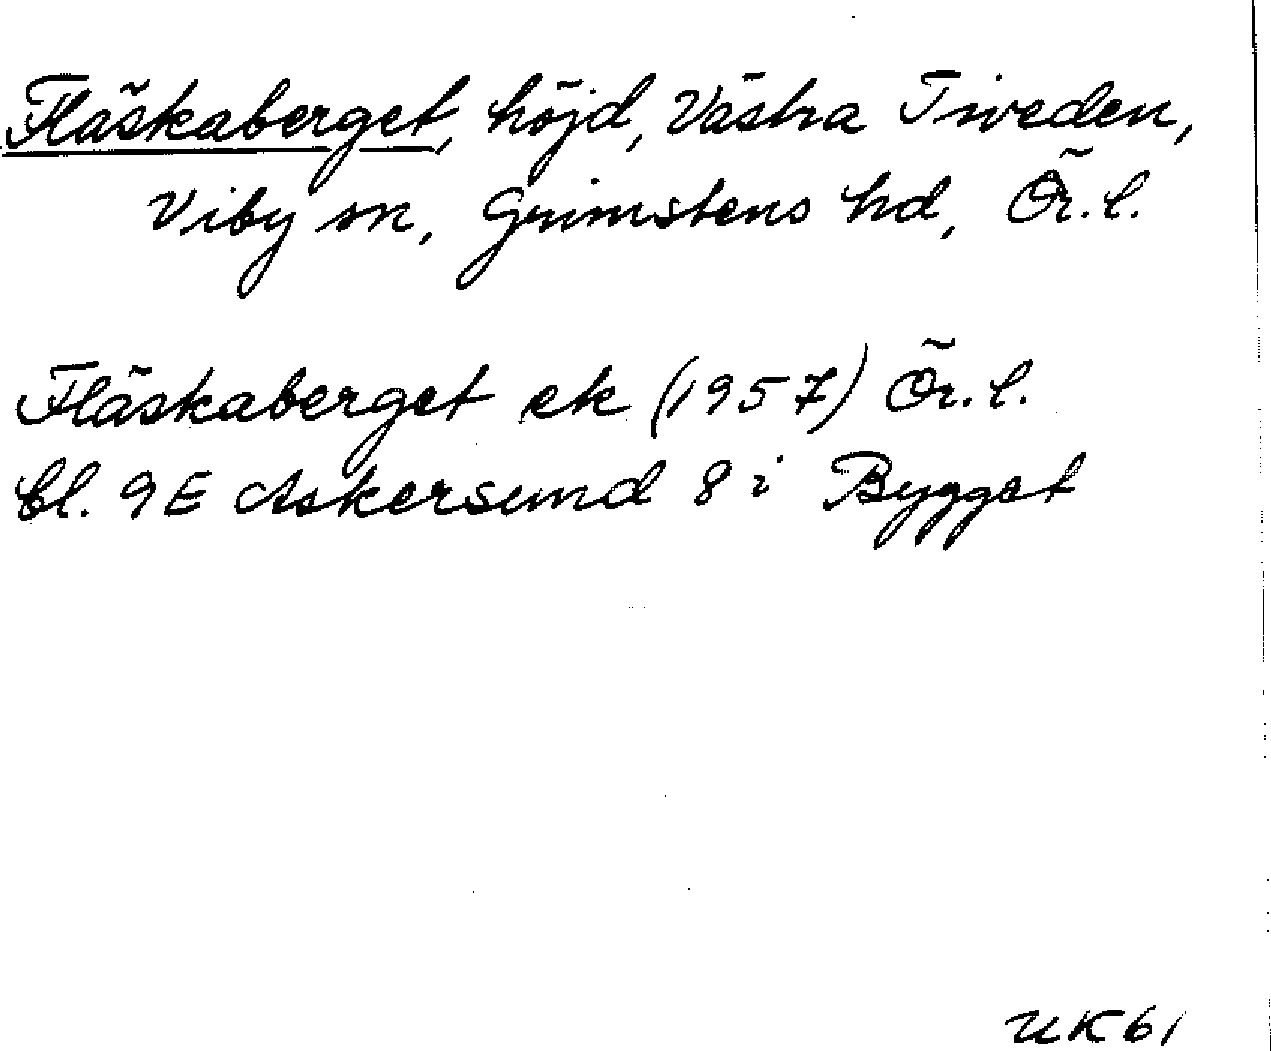 Fläskaberget, höjd, Västra Tiveden,
Viby sn, Grimstens hd, Ör. l.
Fläskaberget ek (1957) Ör. l.
bl. 9E Askersund 8 i Bygget
UK61